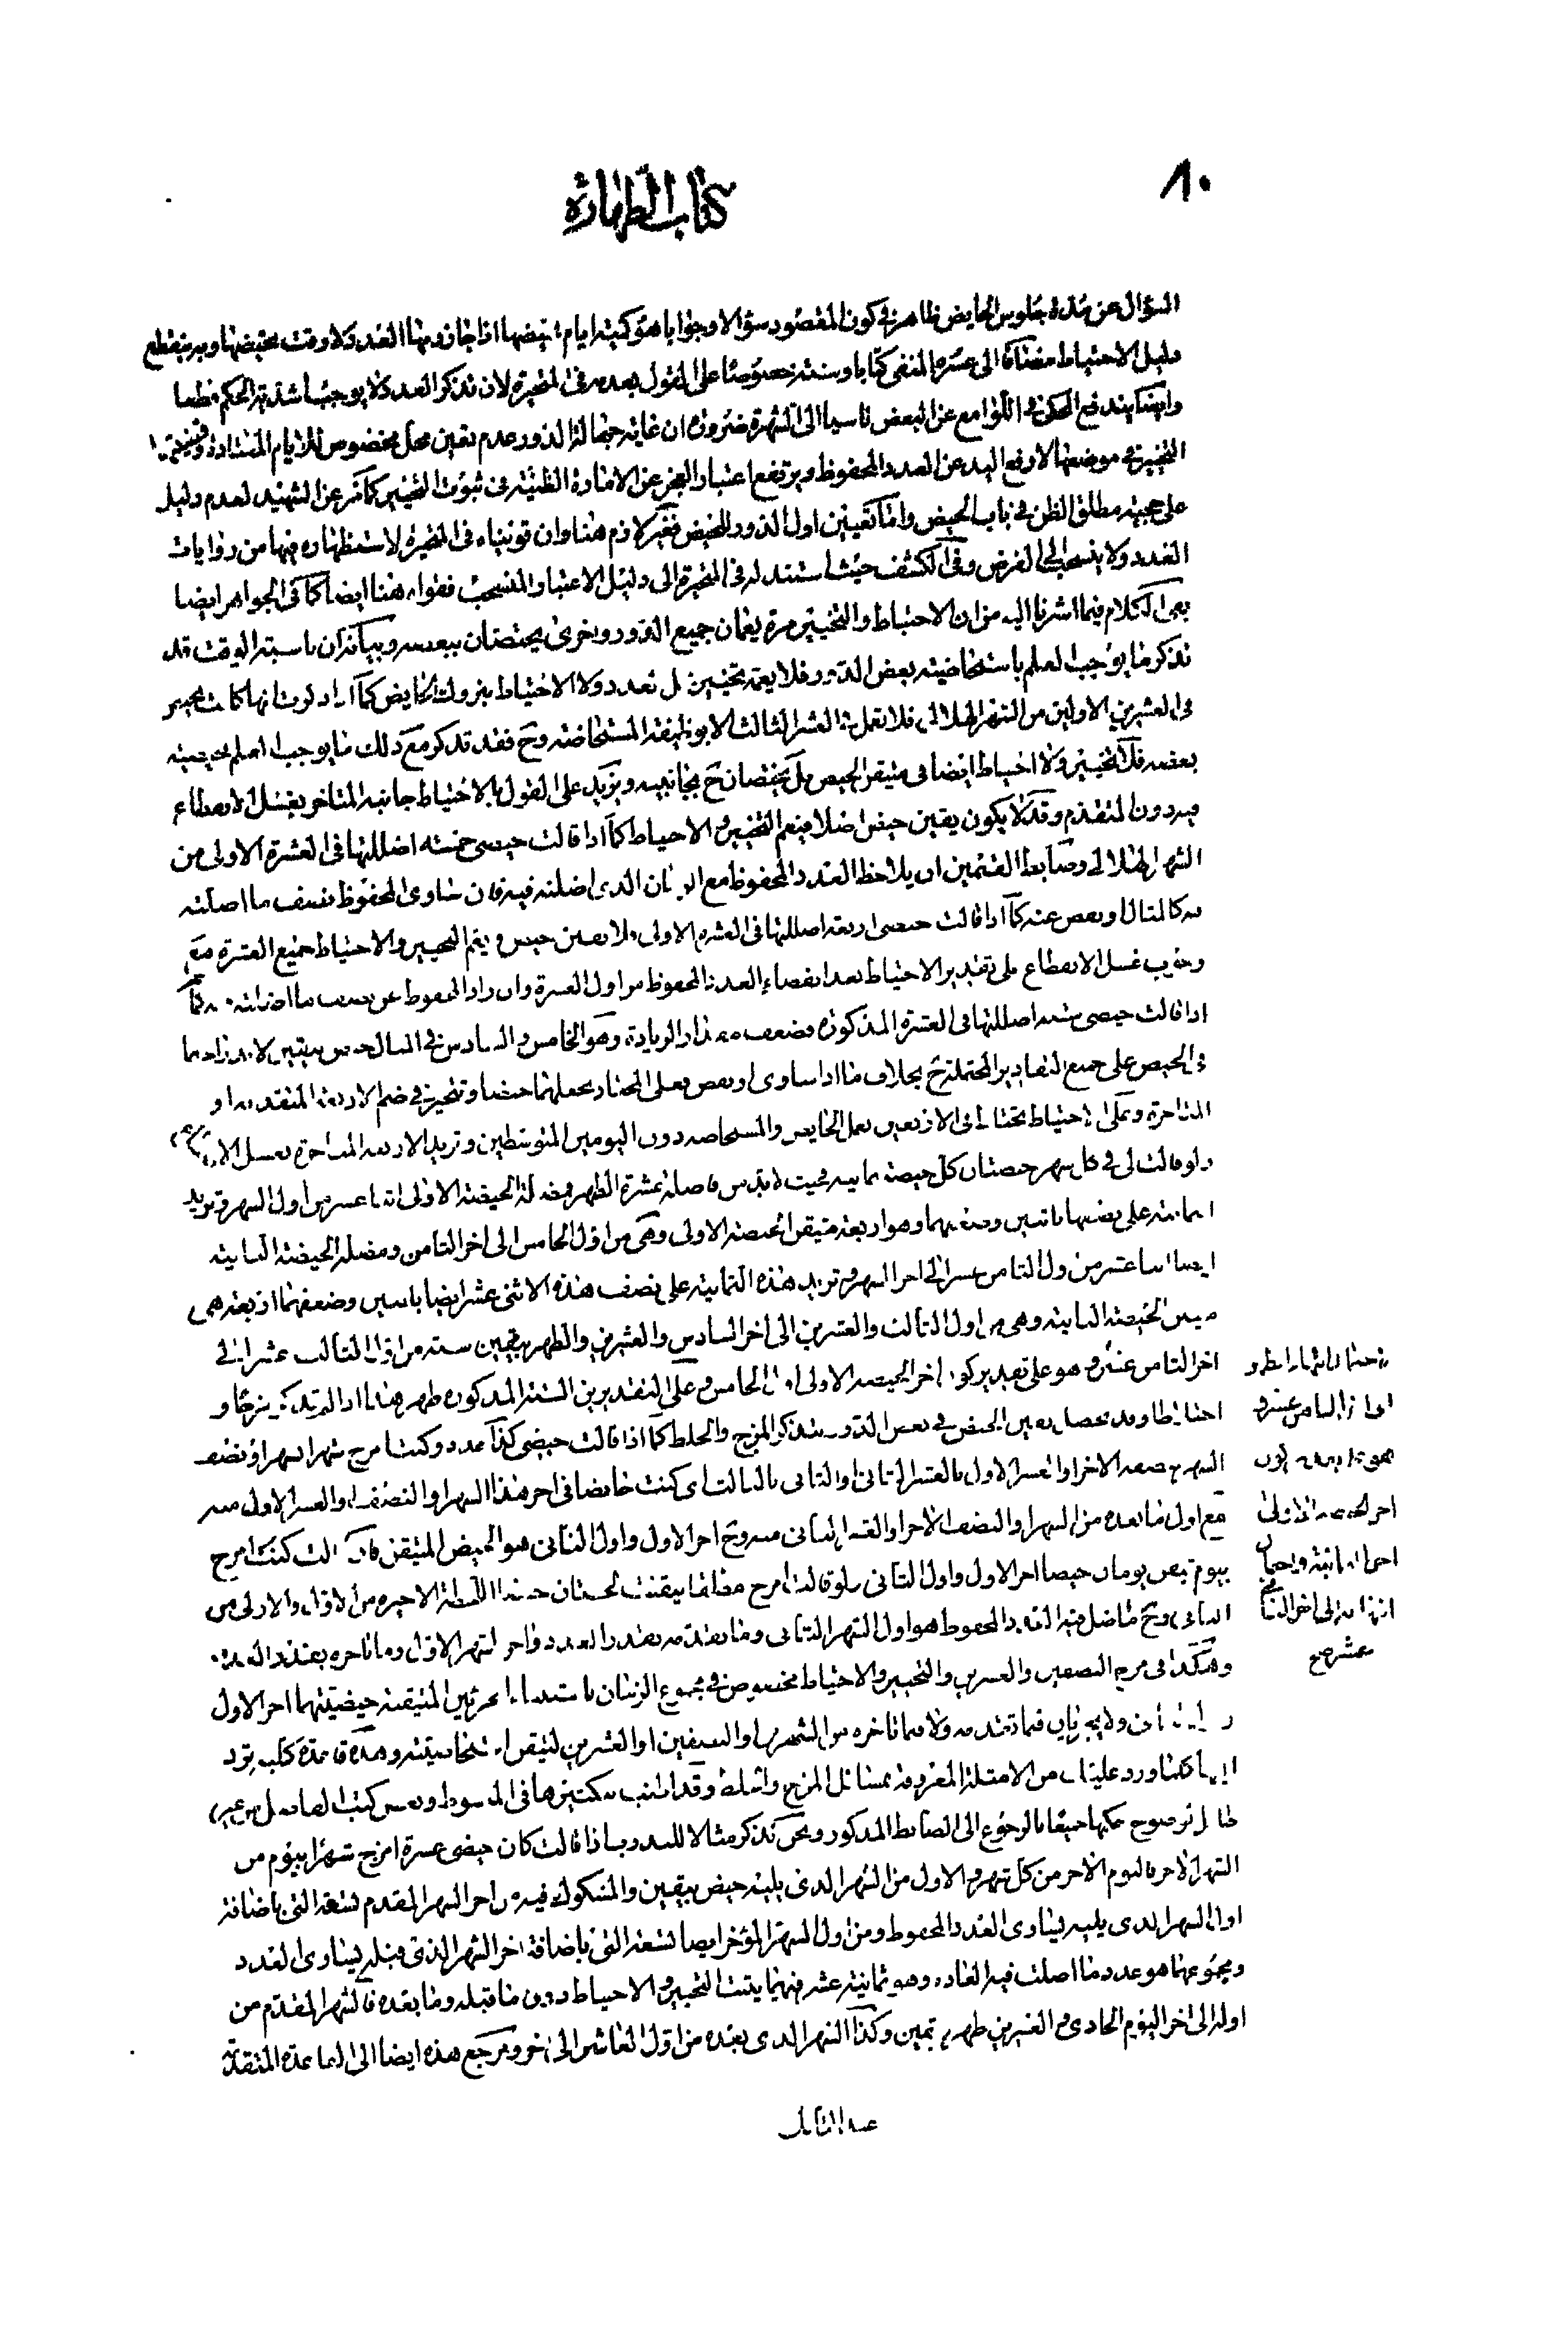 ٨٠
كتاب الطهارة
السؤال عن مدة جلوس الحايض ظاهر في كون المقصود سؤالا وجوابا هو كمية ايام تحيضها اذا جاز دمها العدد لا وقت تحيضها وبه ينقطع
دليل الاحتياط مضافا الى عسره المنفى كتابا وسنة خصوصا على القول بعدمه في المتحيرة لان تذكر العدد لا يوجب اشدية الحكم قطعا
وايضا يندفع المحكي في اللوامع عن البعض ناسيا الى الشهرة ضرورة ان غاية جهالة الدور عدم تعين محل مخصوص للايام المعتادة
التخيير في موضعها لا رفع اليد عن العدد المحفوظ ويرتفع اعتبار العجز عن الامارة الظنية في ثبوت التخيير كما مر عن الشهيد لعدم دليل
على حجية مطلق الظن في باب الحيض واما تعيين اول الدور للحيض فغير لازم هنا وان قويناه في المتحيرة لاستظهاره فيها من روايات
العدد ولا ينسحب الى الفرض وفي الكشف حيث استند له في المتحيرة الى دليل الاعتبار المنسحب فقواه هنا ايضا كما في الجواهر ايضا
بقى الكلام فيما اشرنا اليه من ان الاحتياط والتخيير مرة يعمان جميع الدور واخرى يختصان ببعضه وبيانه ان ناسية الوقت قد
تذكر ما يوجب العلم باستحاضية بعض الدور فلا يعمه تخيير العدد ولا الاحتياط بتروك الحايض كما اذا ذكرت انها كانت تحيض
في العشرين الاولين من الشهر الهلالى فلا تعمل في العشر الثالث الا بوظيفة المستحاضة وح فقد تذكر مع ذلك ما يوجب العلم بحيضية
بعضه فلا تخيير ولا احتياط ايضا في متيقن الحيض بل يختصان ح بجانبيه ويزيد على القول بالاحتياط جانبه المتاخر بغسل الانقطاع
فيه دون المتقدم وقد لا يكون يقين حيض اصلا فيعم التخيير والاحتياط كما اذا قالت حيضى خمسة اضللتها في العشرة الاولى من
الشهر الهلالى وضابط القسمين ان يلاحظ العدد المحفوظ مع الزمان الذى اضلته فيه فان ساوى المحفوظ نصف ما اضلته
فيه كالمثال او نقص عنه كما اذا قالت حيضى اربعة اضللتها في العشرة الاولى فلا يقين حيض ويعم التخيير والاحتياط جميع العشرة مع
وجوب غسل الانقطاع على تقدير الاحتياط بعد انقضاء العدد المحفوظ من اول العشرة وان زاد المحفوظ عن نصف ما اضلته فيه كما
اذا قالت حيضى ستة اضللتها في العشرة المذكورة فضعف مقدار الزيادة وهو الخامس والسادس في المثال حيض بيقين لاندراجهما
في الحيض على جميع التقادير المحتملة ح بخلاف ما اذا ساوى او نقص فعلى المختار تجعلهما حيضا وتتخير في ضم الاربعة المتقدمة او
المتاخرة وعلى الاحتياط تحتاط في الاربعين بعمل الحايض والمستحاضة دون اليومين المتوسطين وتزيد الاربعة المتاخرة بغسل
ولو قالت لى في كل شهر حيضتان كل حيضة ثمانية فحيث لابد من فاصلة عشرة الطهر فمضلة الحيضة الاولى اثنا عشر من اول الشهر وتزيد
الثمانية على نصفها باثنين وضعفهما وهو اربعة متيقن الحيضة الاولى وهى من اول الخامس الى اخر الثامن ومضلة الحيضة الثانية
ايضا اثنا عشر من اول التاسع عشر الى اخر الشهر وتزيد هذه الثمانية على نصف هذه الاثنى عشر ايضا باثنين وضعفهما اربعة هى
متيقن الحيضة الثانية وهى من اول الثالث والعشرين الى اخر السادس والعشرين والطهر بيقين ستة من اول الثالث عشر الى
اخر الثامن عشر وهو على تقدير كون اخر الحيضة الاولى اول الخامس وعلى التقديرين الستة المذكورة طهر هذا اذا لم تذكر مزجا و
اختلاطا وقد يحصل يقين الحيض في بعض الدور بتذكر المزج والخلط كما اذا قالت حيضى كذا عدد وكنت امزج شهرا بشهر او نصف
الشهر بنصفه الاخر او العشر الاول بالعشر الثانى او الثانى بالثالث اى كنت حايضا في اخر هذا الشهر او النصف او العشر الاول منه
مع اول ما بعده من الشهر او النصف الاخر او العشر الثانى منه وح اخر الاول واول الثانى هو الحيض المتيقن فان قالت كنت امزج
بيوم تيقن يومان حيضا اخر الاول واول الثانى ولو قالت امزج مطلقا تيقنت لحظتان حيضا اللحظة الاخيرة من الاول والاولى من
الثانى وح ما اضل فيه العدد المحفوظ هو اول الشهر الثانى وما بعده بقدر العدد واخر الشهر الاول وما تاخره بقدر العدد
وهكذا في مزج النصفين والعشرين والتخيير والاحتياط مخصوص في مجموع الزمان باستثناء الجزئين المتيقنة حيضيتهما اخر الاول
واول الثانى ولا يجريان فيما تقدمه ولا فيما تاخره من الشهرين او النصفين او العشرين لتيقن استحاضيته وهذه قاعدة كلية ترد
اليها كلما ورد عليك من الامثلة المعروفة بمسائل المزج والخلط وقد اطنب بتكثيرها في المبسوط وبعض كتب الفاضل من غير
طائل لوضوح حكمها جميعا بالرجوع الى الضابط المذكور ونحن نذكر مثالا للتدريب اذا قالت كان حيضى عشرة امزج شهرا بيوم من
الشهر الاخر فاليوم الاخر من كل شهر والاول من الشهر الذى يليه حيض بيقين والمشكوك فيه من اخر الشهر المقدم تسعة التى باضافة
اول الشهر الذى يليه يساوى العدد المحفوظ ومن اول الشهر المؤخر ايضا تسعة التى باضافة اخر الشهر الذى قبله يساوى العدد
ومجموعهما هو عدد ما اضلت فيه العادة وهو ثمانية عشر فيهما يثبت التخيير والاحتياط دون ما قبله وما بعده فالشهر المقدم من
اوله الى اخر اليوم الحادى والعشرين طهر بيقين وكذا الشهر الذى بعده من اول العاشر الى اخره ومرجع هذه ايضا الى القاعدة المتقدمة
هو على تقدير كون
اخر الحيضة الاولى
اخر الثامن
عشر صح
عند التامل